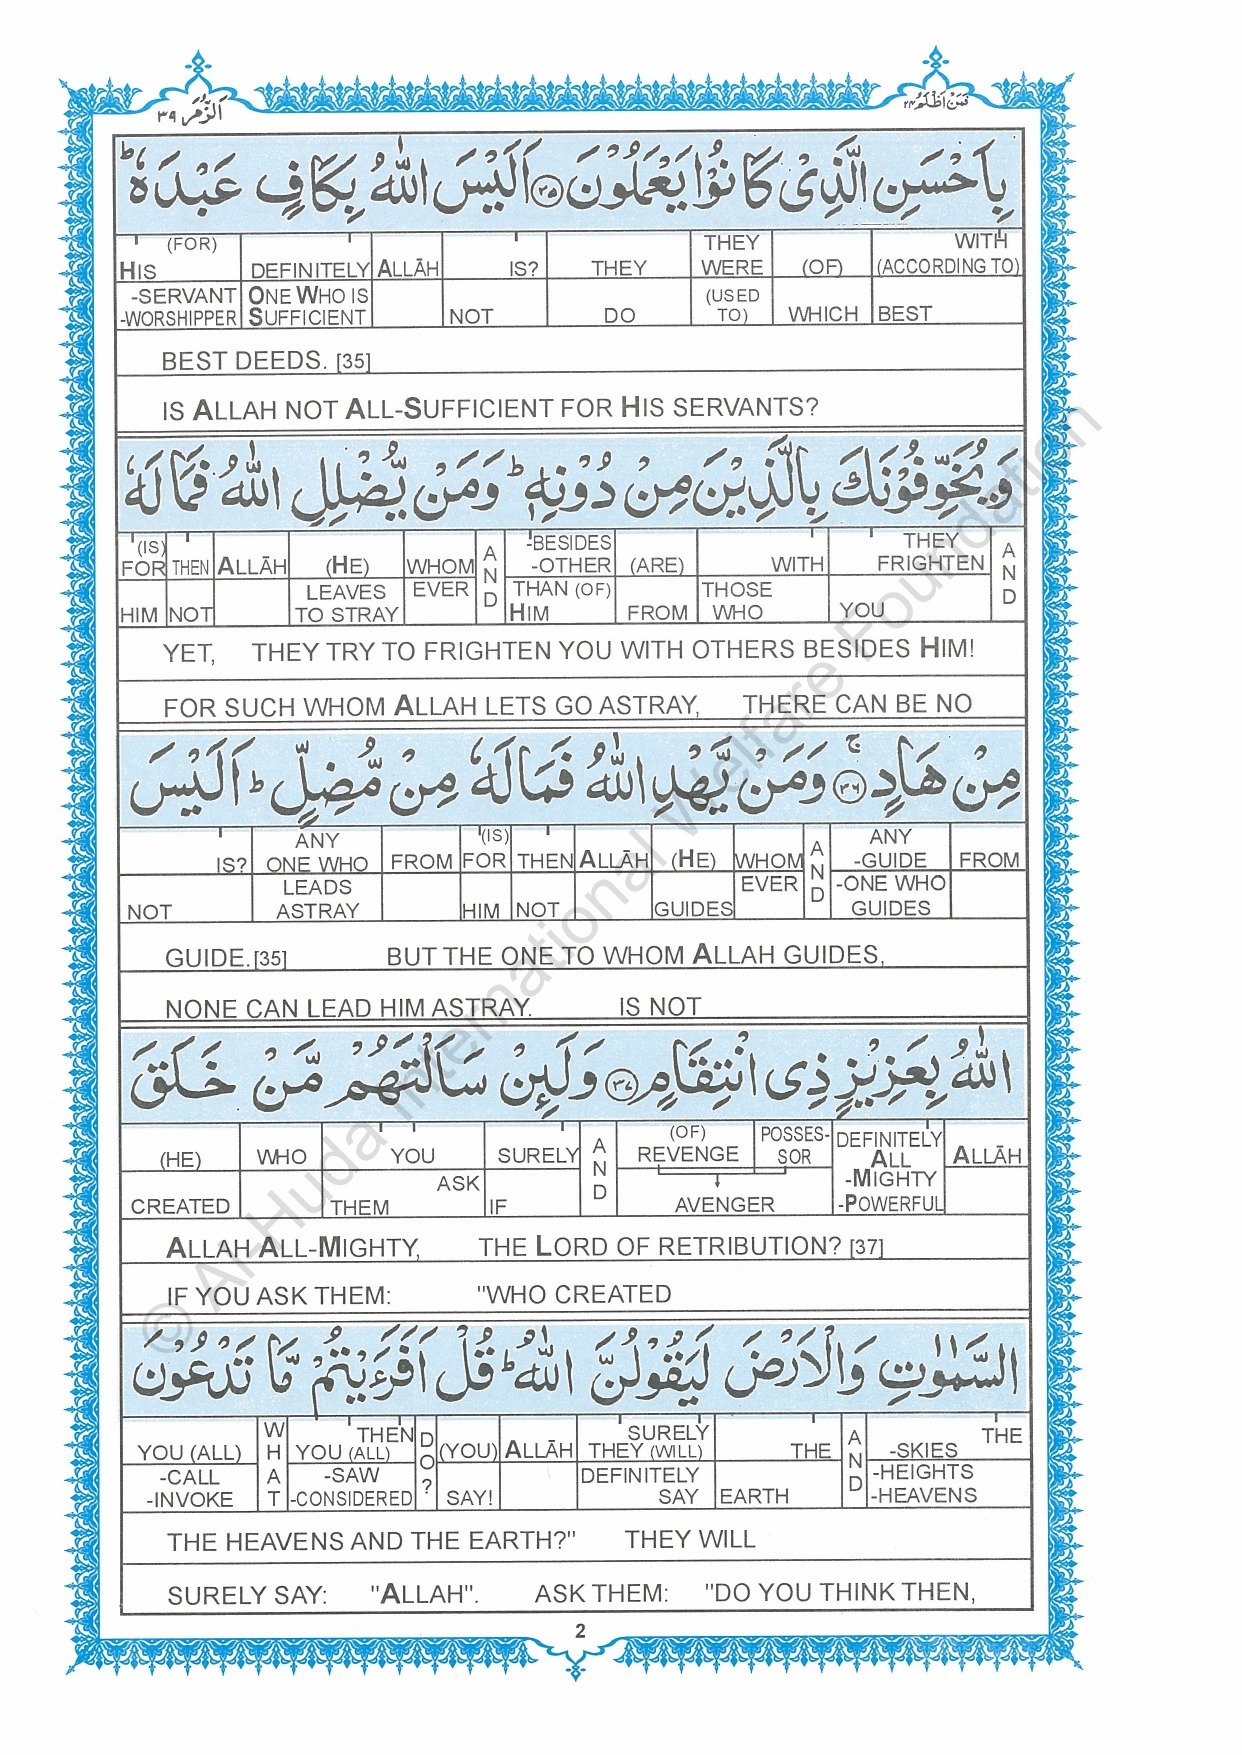 اَلزُّمَر ٣٩
فَمَنْ اَظْلَمُ ٢٤
بِاَحْسَنِ الَّذِىْ كَانُوْا يَعْمَلُوْنَ ٣٥ اَلَيْسَ اللّٰهُ بِكَافٍ عَبْدَهٗ ؕ
(FOR) THEY WITH
HIS DEFINITELY ALLĀH IS? THEY WERE (OF) (ACCORDING TO)
-SERVANT ONE WHO IS (USED
-WORSHIPPER SUFFICIENT NOT DO TO) WHICH BEST
BEST DEEDS. [35]
IS ALLAH NOT ALL-SUFFICIENT FOR HIS SERVANTS?
وَيُخَوِّفُوْنَكَ بِالَّذِيْنَ مِنْ دُوْنِهٖ ؕ وَمَنْ يُّضْلِلِ اللّٰهُ فَمَا لَهٗ
(IS) AND -BESIDES THEY AND
FOR THEN ALLĀH (HE) WHOM -OTHER (ARE) WITH FRIGHTEN
LEAVES EVER THAN (OF) THOSE
HIM NOT TO STRAY HIM FROM WHO YOU
YET, THEY TRY TO FRIGHTEN YOU WITH OTHERS BESIDES HIM!
FOR SUCH WHOM ALLAH LETS GO ASTRAY, THERE CAN BE NO
مِنْ هَادٍ ۚ ٣٦ وَمَنْ يَّهْدِ اللّٰهُ فَمَا لَهٗ مِنْ مُّضِلٍّ ؕ اَلَيْسَ
ANY (IS) AND ANY
IS? ONE WHO FROM FOR THEN ALLĀH (HE) WHOM -GUIDE FROM
LEADS EVER -ONE WHO
NOT ASTRAY HIM NOT GUIDES GUIDES
GUIDE.[35] BUT THE ONE TO WHOM ALLAH GUIDES,
NONE CAN LEAD HIM ASTRAY. IS NOT
اللّٰهُ بِعَزِيْزٍ ذِى انْتِقَامٍ ٣٧ وَلَئِنْ سَاَلْتَهُمْ مَّنْ خَلَقَ
AND (OF) POSSES- DEFINITELY
(HE) WHO YOU SURELY REVENGE SOR ALL ALLĀH
ASK -MIGHTY
CREATED THEM IF AVENGER -POWERFUL
ALLAH ALL-MIGHTY, THE LORD OF RETRIBUTION? [37]
IF YOU ASK THEM: "WHO CREATED
السَّمٰوٰتِ وَالْاَرْضَ لَيَقُوْلُنَّ اللّٰهُ ؕ قُلْ اَفَرَءَيْتُمْ مَّا تَدْعُوْنَ
WHAT THEN DO? SURELY AND THE
YOU (ALL) YOU (ALL) (YOU) ALLĀH THEY (WILL) THE -SKIES
-CALL -SAW DEFINITELY -HEIGHTS
-INVOKE -CONSIDERED SAY! SAY EARTH -HEAVENS
THE HEAVENS AND THE EARTH?" THEY WILL
SURELY SAY: "ALLAH". ASK THEM: "DO YOU THINK THEN,
2
© Al-Huda International Welfare Foundation